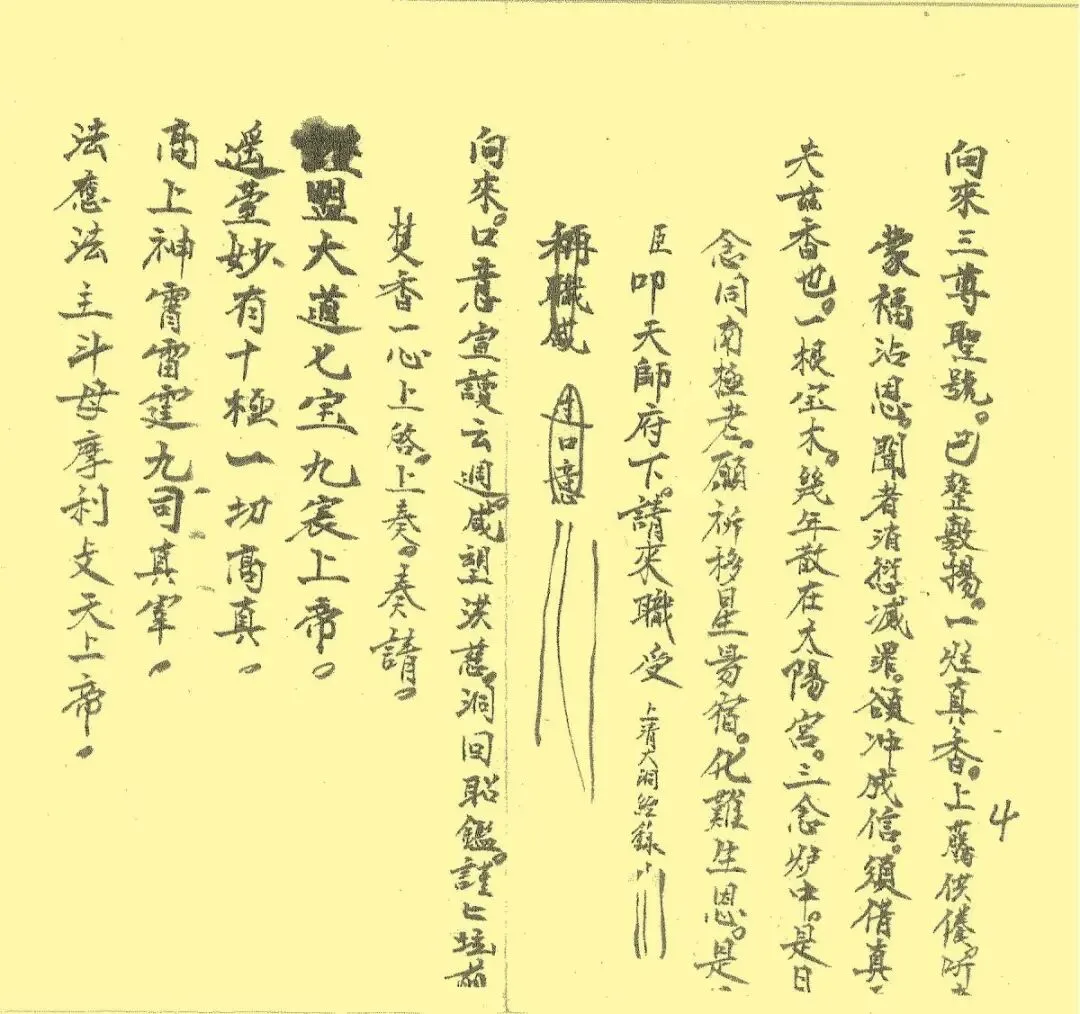 4
向來三尊聖號。已整敷揚。一炷真香。上荐供養。所
蒙福沾恩。聞者消愆滅罪。欲冲成信。須借真
夫茲香也。一根宝木。幾年散在太陽宮。三念炉中。是日
念同南極老。願祈移星易宿。化難生恩。是
臣叩天師府下。請來職受 上清大洞經籙
稱職感 進口意
向來。口意宣讀云週。咸望洪慈。洞回昭鑑。謹匕坛前
焚香一心上啓。上奏。奏請。
盟大道七宝九宸上帝。
遥堂妙有十極一切高真。
高上神霄雷霆九司真宰。
法應法主斗母摩利支天上帝。